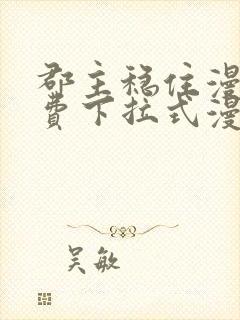 郡主稳住漫
费下拉式漫
吴敏